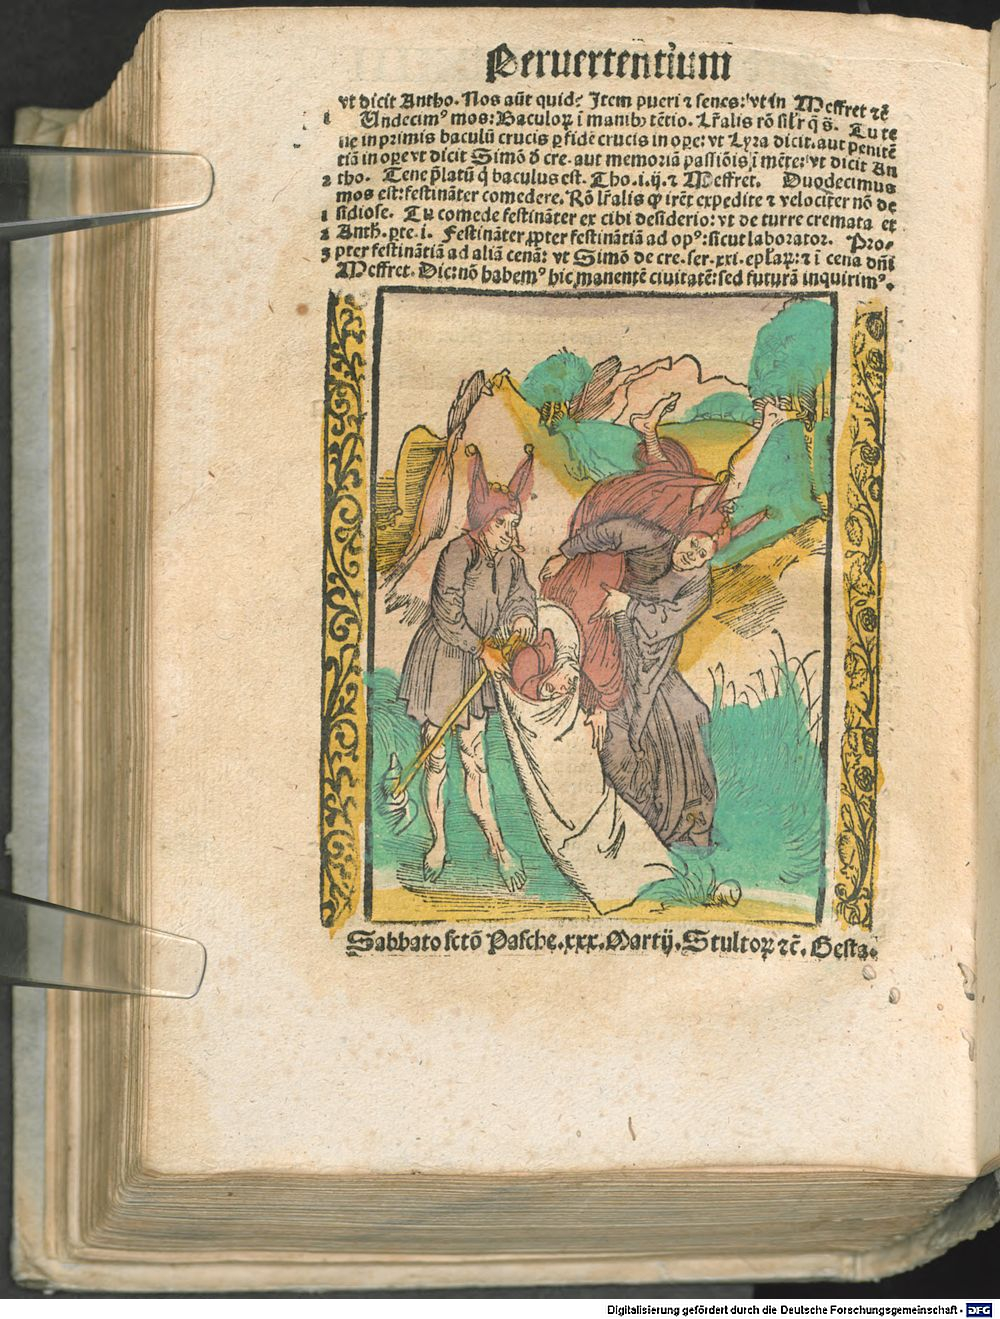 Peruertentium
vt dicit Antho. Nos aūt quid? Item pueri ⁊ senes: vt in Meffret ⁊c̄
1 Undecimꝰ mos: Baculoꝝ ī manibꝰ tētio. Lr̄alis rō sil'r q̄ s̄. Tu te
ne in primis baculū crucis ꝑ fidē crucis in oꝑe: vt Lyra dicit. aut penitē
tiā in oꝑe vt dicit Simō d̄ cre. aut memoriā passiōis ī mēte: vt dicit An
2 tho. Tene p̄latū q̄ baculus est. Tho. i. ij. ⁊ Meffret. Duodecimus
mos est: festināter comedere. Rō lr̄alis ꝙ irēt expedite ⁊ velociter nō de
1 sidiose. Tu comede festināter ex cibi desiderio: vt de turre cremata et
2 Anth. ꝑte. i. Festināter ꝓpter festinātiā ad opꝰ: sicut laborator. Pro-
3 pter festinātiā ad aliā cenā: vt Simō de cre. ser. xxi. ep̄laꝝ: ⁊ ī cena dn̄i
Meffret. Dic: nō habemꝰ hic manentē ciuitatē: sed futurā inquirimꝰ.
Sabbato sctō Pasche. xxx. Martij. Stultoꝝ ⁊c̄. Gesta.
Digitalisierung gefördert durch die Deutsche Forschungsgemeinschaft - DFG